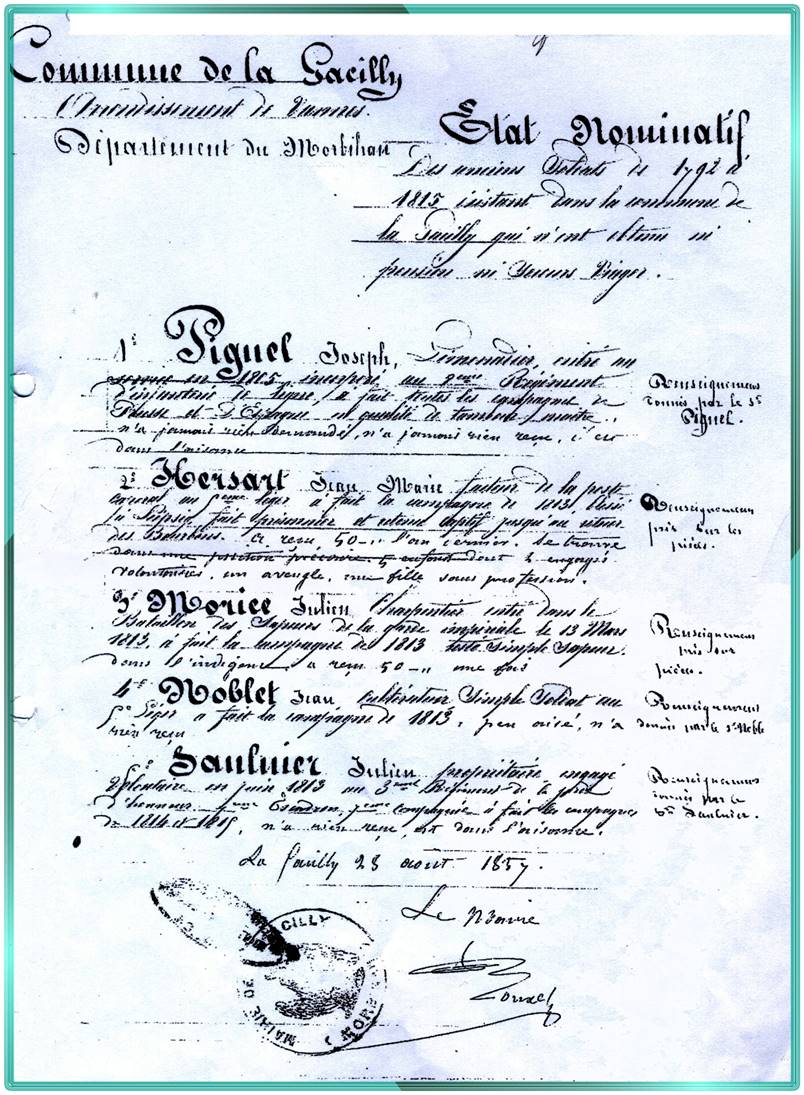 Commune de la Gacilly
Arrondissement de Vannes.
Département du Morbihan
État Nominatif
Des anciens Soldats de 1792 à
1815 existant dans la commune de
la Gacilly qui n'ont obtenu ni
pension ni Secours Viager.
1° Piguel Joseph, Limonadier, entré au
service en 1805 incorporé au 2eme Régiment
d'infanterie légère, a fait toutes les campagnes de
Prusse et d'Espagne en qualité de tambour maître.
n'a jamais rien demandé, n'a jamais rien reçu, est
dans l'aisance
Renseignements
donnés par le Sr
Piguel.
2° Hersart Jean Marie facteur de la poste
caporal au léger à fait la campagne de 1813, blessé
à Leipsic, fait prisonnier et retenu captif jusqu'au retour
des Bourbons. a reçu 50 -" l'an dernier. Se trouve
dans une position précaire. 5 enfants dont 2 engagés
volontaires, un aveugle, une fille sans profession.
Renseignemens
pris sur les
pièces.
3° Morice Julien Charpentier entré dans le
Bataillon des Sapeurs de la garde impériale le 13 Mars
1813, à fait la campagne de 1813 resté simple sapeur.
dans l'indigence a reçu 50 -" une fois
Renseignemens
pris sur
pièces.
4° Noblet Jean Cultivateur Simple Soldat au
Léger a fait la campagne de 1813, peu aisé, n'a
rien reçu
Renseignement
donnés par le Sr Noble
5° Saulnier Julien propriétaire engagé
Volontaire en juin 1813 au 3eme Régiment de la garde
d'honneur Escadron, compagnie à fait les campagnes
de 1814 et 1815, n'a rien reçu, est dans l'aisance.
Renseignemens
donnés par le
Sr Saulnier.
La Gacilly 28 août 1857.
Le Maire
MAIRIE DE LA GACILLY
MORB